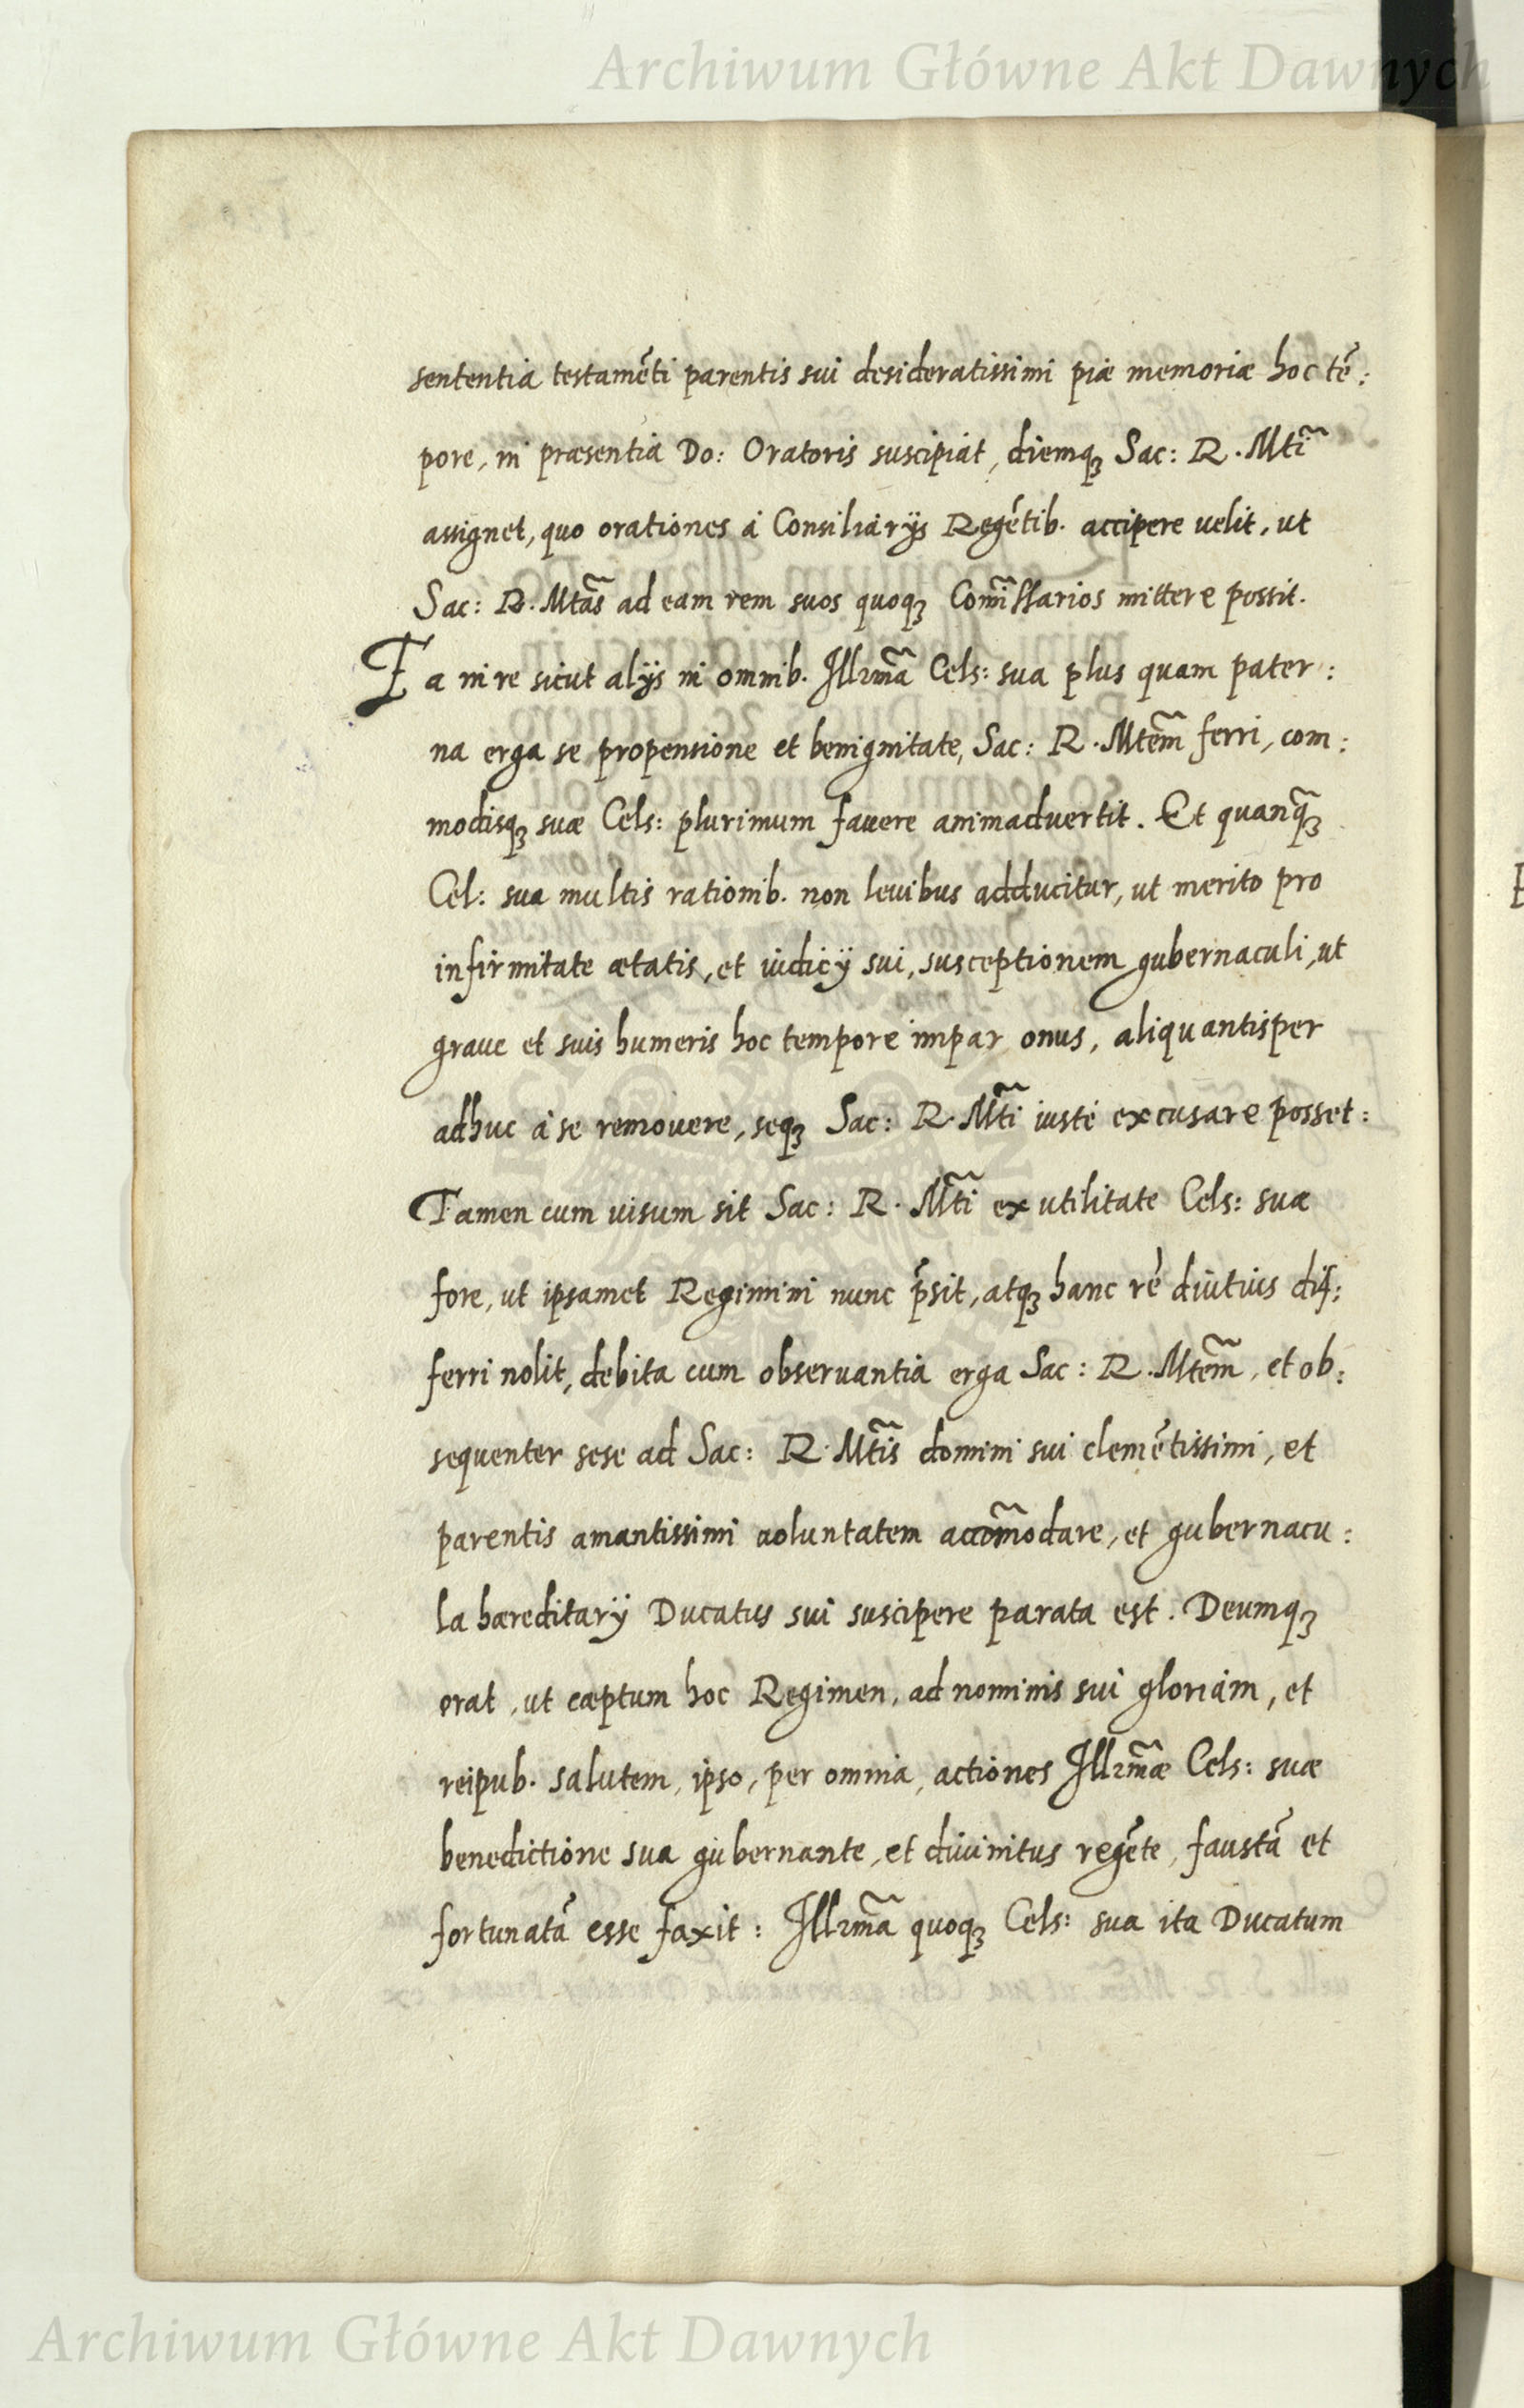 Archiwum Główne Akt Dawnych
sententia testamẽti parentis sui desideratissimi piæ memoriæ hoc tẽ:
pore, in præsentia Do: Oratoris suscipiat, diemqꝫ Sac: R. Mti̅
assignet, quo orationes à Consiliarijs Regẽtib. accipere uelit, ut
Sac: R. Mta̅s ad eam rem suos quoqꝫ Com̅issarios mittere possit.
Ea in re sicut alijs in omnib. Illrm̅a Cels: sua plus quam pater:
na erga se propensione et benignitate, Sac: R. Mtem̅ ferri, com:
modisqꝫ suæ Cels: plurimum fauere animaduertit. Et quanq̅ꝫ
Cel: sua multis rationib. non leuibus adducitur, ut merito pro
infirmitate ætatis, et iudicij sui, susceptionem gubernaculi, ut
graue et suis humeris hoc tempore impar onus, aliquantisper
adhuc à se remouere, seqꝫ Sac: R. Mti̅ iustè excusare posset:
Tamen cum uisum sit Sac: R. Mti̅ ex utilitate Cels: suæ
fore, ut ipsamet Regimini nunc p̃sit, atqꝫ hanc rẽ diutius dif:
ferri nolit, debita cum obseruantia erga Sac: R. Mtem̅, et ob:
sequenter sese ad Sac: R. Mti̅s domini sui clemẽtissimi, et
parentis amantissimi uoluntatem accom̅odare, et gubernacu:
la hæreditarij Ducatus sui suscipere parata est. Deumqꝫ
orat, ut cæptum hoc Regimen, ad nominis sui gloriam, et
reipub. salutem, ipso, per omnia, actiones Illrm̅æ Cels: suæ
benedictione sua gubernante, et diuinitus regẽte, faustã et
fortunatã esse faxit: Illrm̅a quoqꝫ Cels: sua ita Ducatum
Archiwum Główne Akt Dawnych